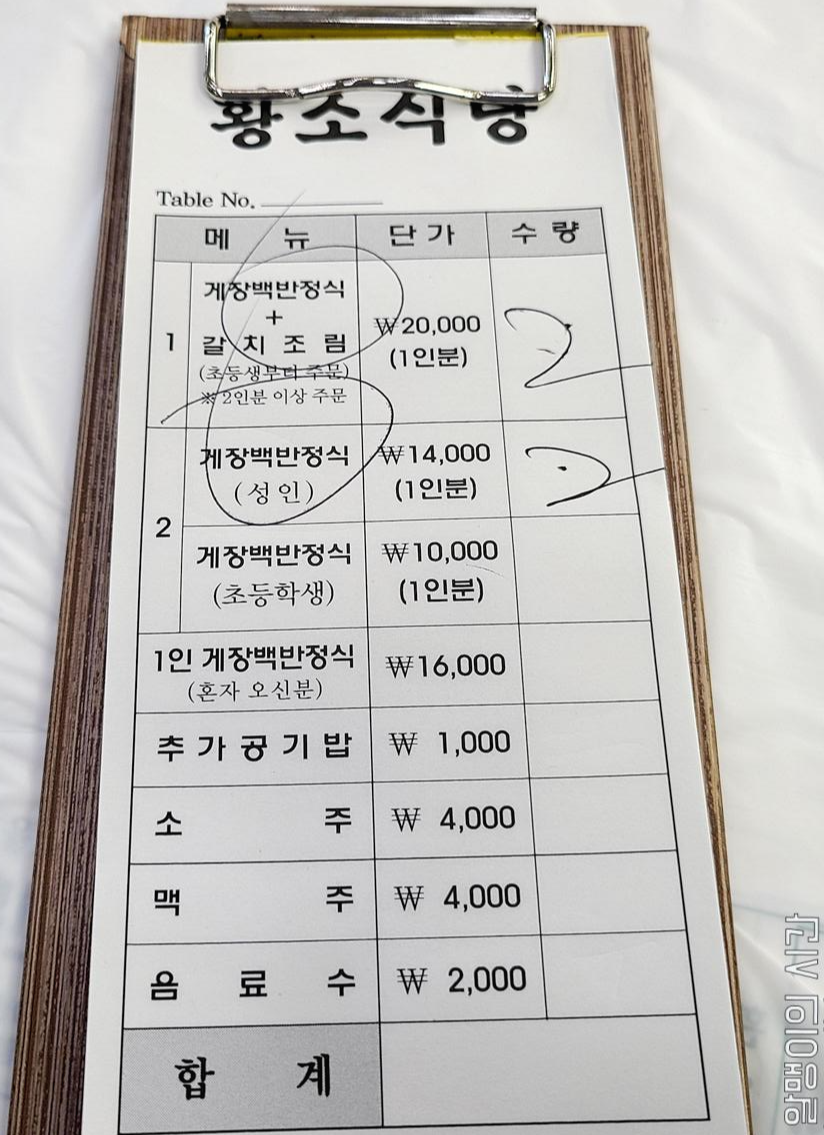 황소식당
Table No.
메 뉴 단 가 수 량
1 게장백반정식
+
갈 치 조 림
(초등생부터 주문)
※ 2인분 이상 주문
₩20,000
(1인분)
2
2 게장백반정식
(성인)
₩14,000
(1인분)
2
게장백반정식
(초등학생)
₩10,000
(1인분)
1인 게장백반정식
(혼자 오신분)
₩16,000
추가공기밥 ₩ 1,000
소 주 ₩ 4,000
맥 주 ₩ 4,000
음 료 수 ₩ 2,000
합 계
알맹이의 시간